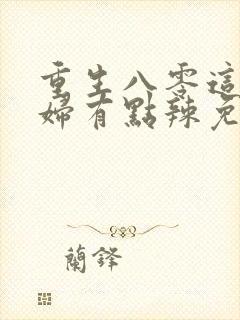 重生八零這
婦有點辣免
蘭鋒